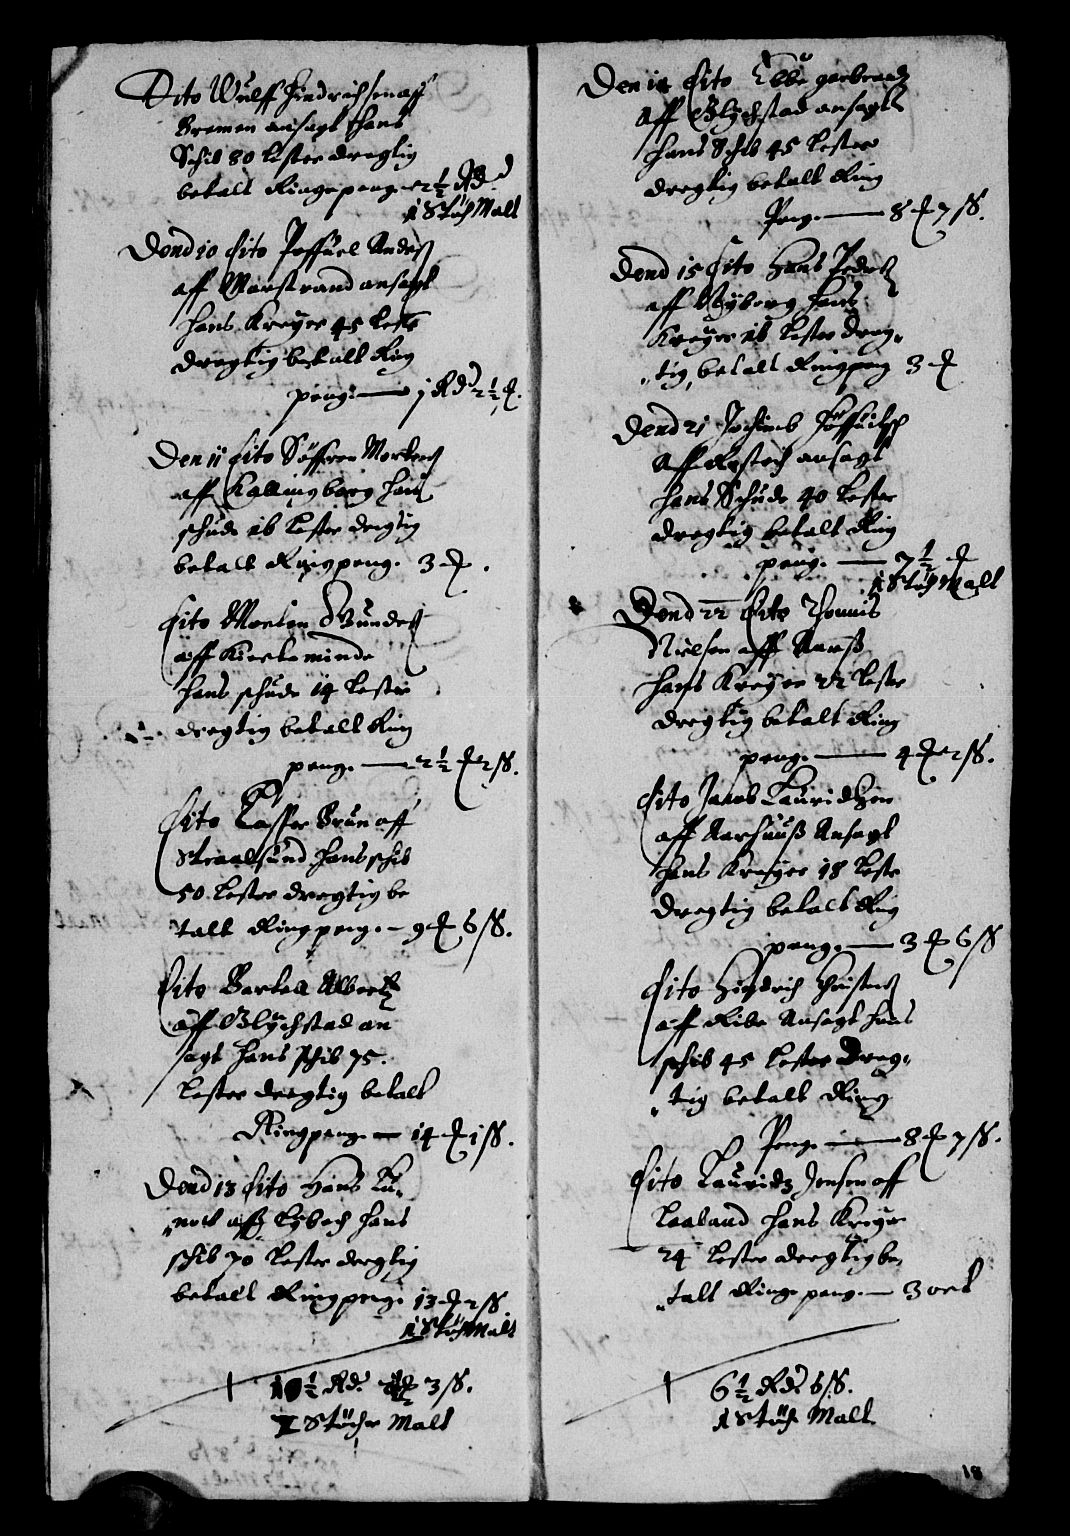 Dito Wulff Hindrichsen aff
Bremen ansagt hans
Schib 80 lester dregtig
betalt Ringepeng. 2½ Rd.
1 Stöch Malt
Dend 10 Dito Poffuel Anders
aff Marstrand ansagt
hans Kreyer 45 leste
dregtig betalt Ring
peng. — 1 Rd 2½
Den 11 Dito Söffren Mortens
aff Kallingborg hans
schude 16 lester dregtig
betalt Ringpeng. 3
Dito Morten
aff Kierteminde
hans schude 14 lester
dregtig betalt Ring
peng. — 2½ 2 ß.
Dito Casper Brun aff
Straalsund hans schib
50 lester dregtig be
talt Ringpeng. — 9 6 ß.
Dito Albertz
aff Glychstad an
sagt hans schib 75.
lester dregtig betalt
Ringpeng. — 14 1 ß.
Dend 13 Dito Hans
aff Lybech hans
schib 70 lester dregtig
betalt Ringpeng. 13 2 ß.
1 Stöch Malt
½ Rd. 3 ß.
Stöcher Malt
Den 14 Dito
aff Glychstad ansagt
hans Schib 45 lester
dregtig betalt Ring
Peng. — 8 7 ß.
Dend 15 Dito Hans Peders
aff Nyborg hans
Kreyer 16 lester dreg
tig, betalt Ringpeng 3
Dend 21 Jochimb
Aff Rostoch ansagt
hans Schude 40 lester
dregtig betalt Ring
peng. — 7½
1 Stöch Malt
Dend 22 Dito Thomis
Nielsen aff
hans Kreyer 22 lester
dregtig betalt Ring
peng. — 4 2 ß.
Dito Jacob Lauridtzen
aff Aarhuuß Ansagt
hans Kreyer 18 leste
dregtig betalt Ring
peng. — 3 6 ß
Dito Hindrich
aff Ribe Ansagt hans
schib 45 lester dreg
tig betalt Ring
Peng. — 8 7 ß.
Dito Lauridz Jensen aff
Laaland hans Kreyer
24 lester dregtig be
talt Ringe peng. — 3 ort
6½ Rd. 6 ß.
1 Stöch Malt
18